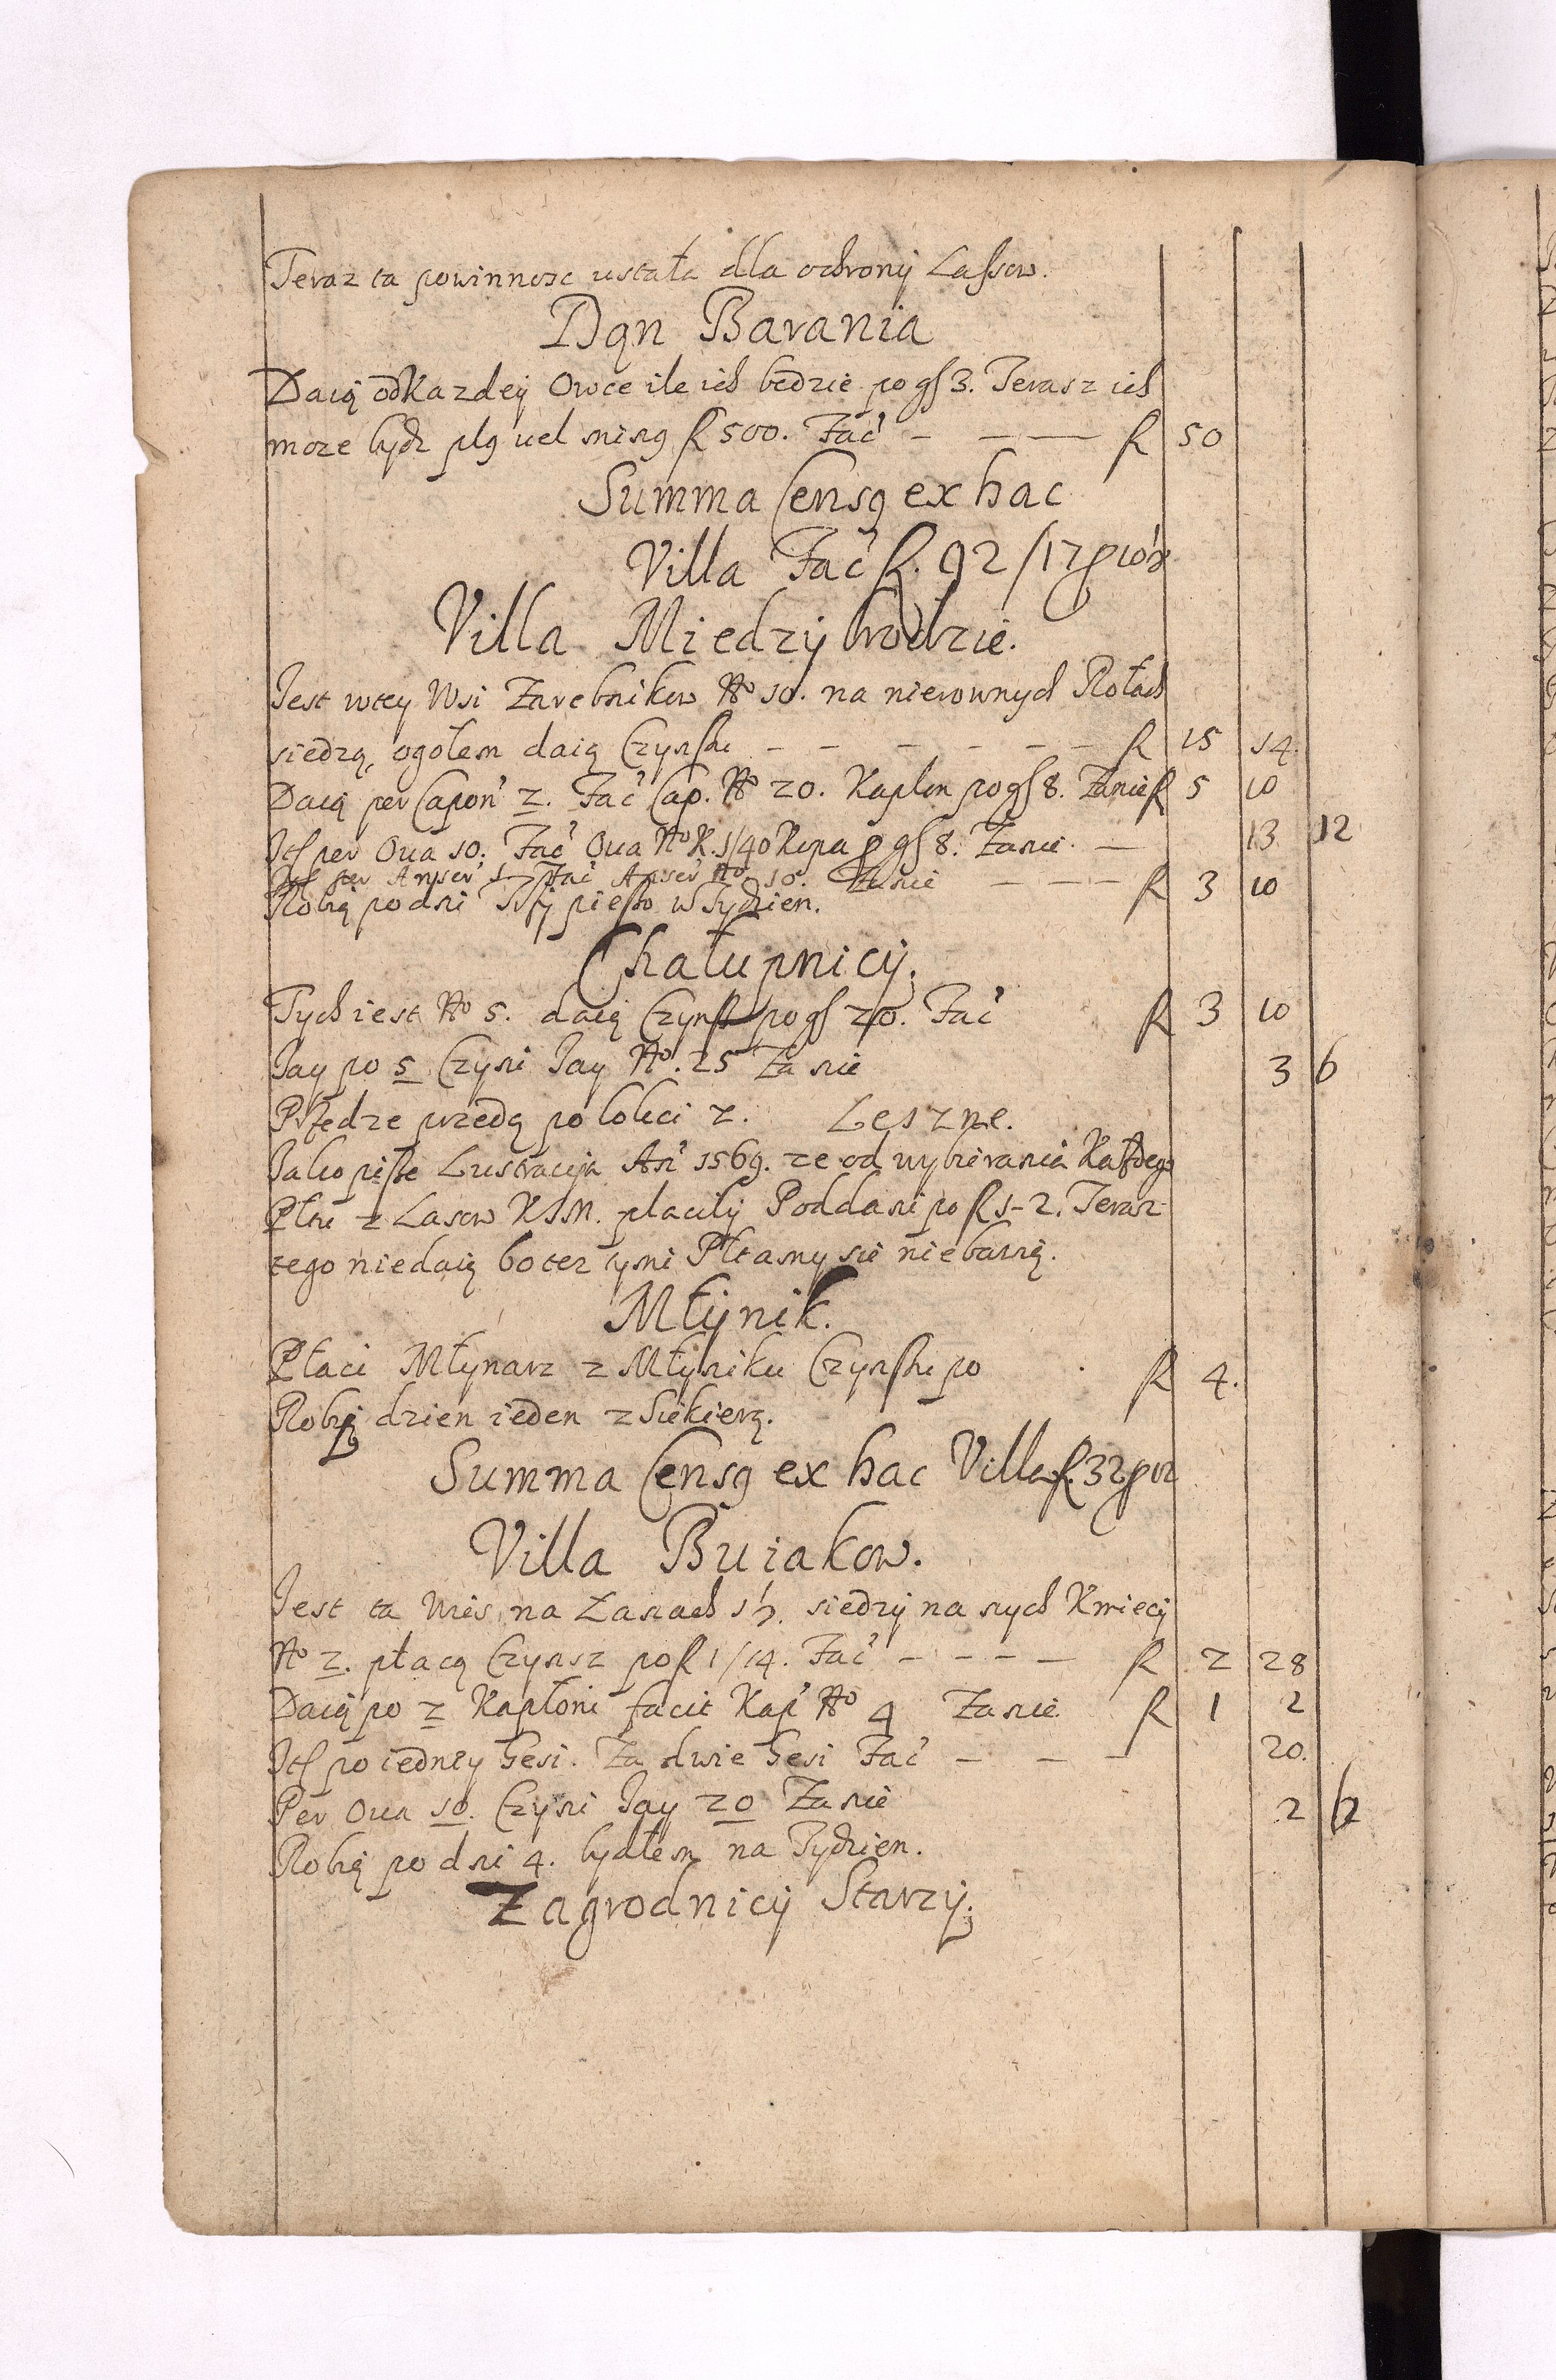 Teraz ta powinnosc ustała dla ochrony Lassow.
Dąn Barania
Daią od Kazdey Owce ile ich bedzie po gſ 3. Terasz ich
moze bydz plg vel ming ſl 500. Fac̃ - - — fl 50
Summa Censg ex hac
Villa Fac̃ fl. 92 / 17
Villa Miedzÿbrodzie.
Jest wtey Wsi Zarebnikow No 10. na nierownych Rolach
siedzą, ogołem daią Czynshu - - - - - - fl 15 14.
Daią per Capoñ 2. Fac̃ Cap. No 20. Kapłon po gſ 8. Zanie fl 5 10
Itſ per Oua 10. Fac̃ Oua No K. 3/40 Kopa p gſ 8. Zanie. — 13 12
Itſ per Anser̃ 1 Fac̃ Anser̃ No 10. Zanie - - - fl 3 10
Robią po dni pieszo w Tydzien.
Chałupnicÿ.
Tych iest No 5. daią Czynsz po gſ 20. Fac̃ fl 3 10
Jay po 5 Czyni Jay No. 25 Za nie 3 6
Przedze przedą po lokci 2. Leszne.
Jako pisze Lustracyja An̄ 1569. ze od wybierania Każdego
Ptn z Lasow KJM. placilÿ Poddani po fl 1-2. Terasz
tego niedaią bo tez yni Ptasny sie nie bawią.
Młÿnik.
Płaci Młynarz z Młyniku Czynshu po fl 4.
Robią dzien ieden z Siekierą.
Summa Censg ex hac Villa fl. 32
Villa Buiakow.
Jest ta Wies na Łanach 1½. siedzÿ na nych Kmiecÿ
No 2. płacą Czynsz po fl 1/14. Fac̃ - - - — fl 2 28
Daią po 2 Kapłoni facit Kap̃ No 4 Zanie. fl 1 2
Itſ po iedneÿ Gesi. Za dwie Gesi Fac̃ - - - 20.
Per Oua 10. Czyni Jay 20 Zanie 2
Robią po dni 4. bydłem na Tydzien.
Zagrodnicÿ Starzÿ.